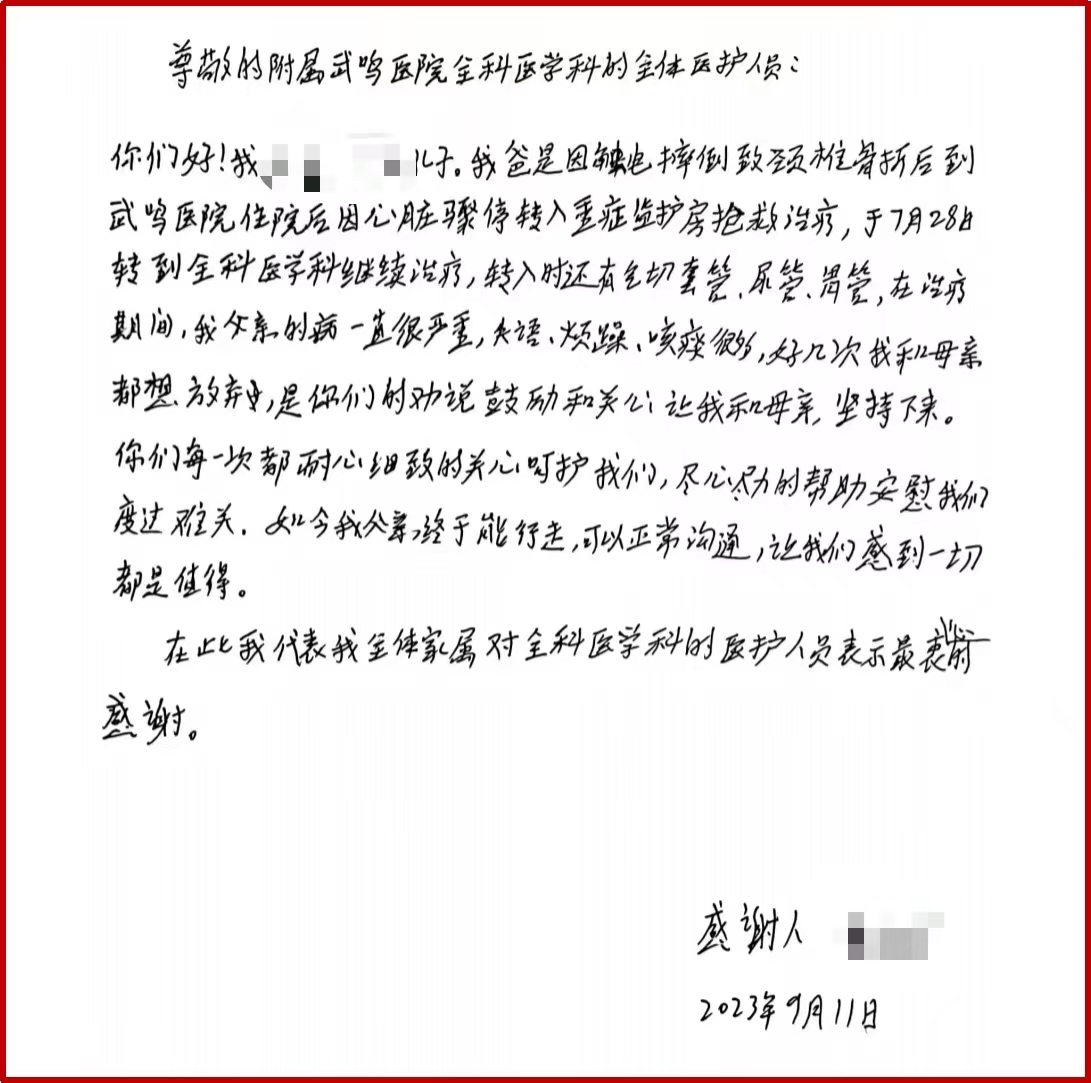 尊敬的附属武鸣医院全科医学科的全体医护人员：
你们好！我 儿子。我爸是因触电摔倒致颈椎骨折后到
武鸣医院住院后因心脏骤停转入重症监护房抢救治疗，于7月28日
转到全科医学科继续治疗，转入时还有气切套管、尿管、胃管，在治疗
期间，我父亲的病一直很严重，失语、烦躁、咳痰很多，好几次我和母亲
都想放弃，是你们的劝说鼓励和关心让我和母亲坚持下来。
你们每一次都耐心细致的关心呵护我们，尽心尽力的帮助安慰我们
度过难关．如今我父亲终于能行走，可以正常沟通，让我们感到一切
都是值得。
在此我代表我全体家属对全科医学科的医护人员表示最衷心的
感谢。
感谢人
2023年9月11日